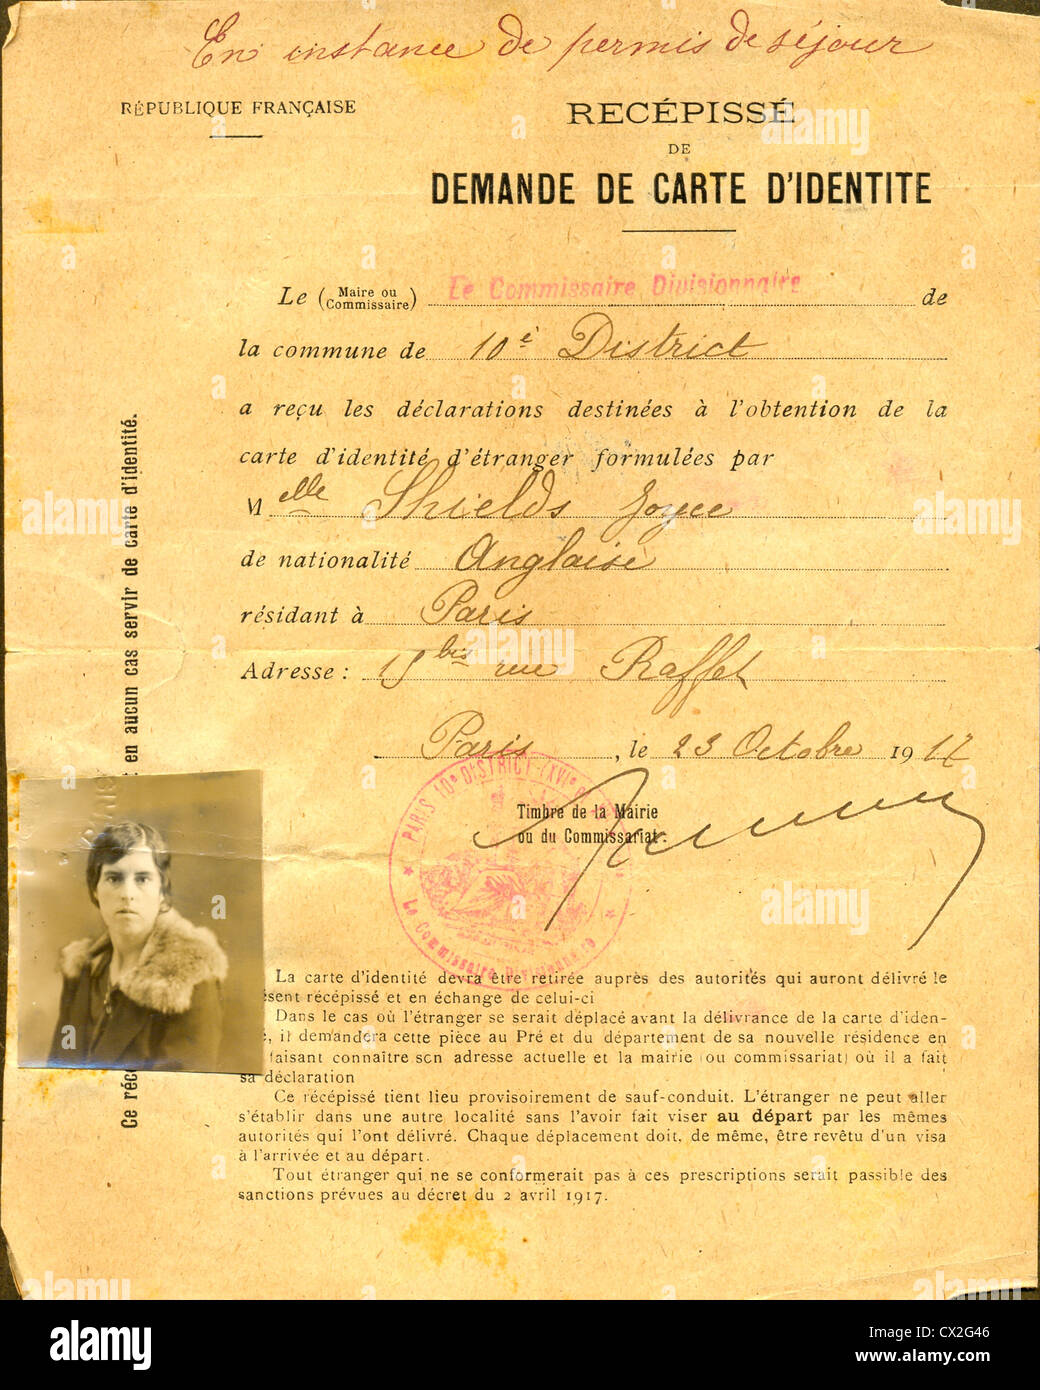 En instance de permis de séjour
RÉPUBLIQUE FRANÇAISE
RECÉPISSÉ
DE
DEMANDE DE CARTE D'IDENTITE
Le (Maire ou Commissaire) Le Commissaire Divisionnaire de
la commune de 10è District
a reçu les déclarations destinées à l'obtention de la
carte d'identité d'étranger formulées par
Melle Shields Joyce
de nationalité Anglaise
résidant à Paris
Adresse : 15 bis rue Raffet
Paris, le 23 Octobre 1917
Timbre de la Mairie
ou du Commissariat :
PARIS 10e DISTRICT (XVIe
Le Commissaire Divisionnaire
La carte d'identité devra être retirée auprès des autorités qui auront délivré le
ésent récépissé et en échange de celui-ci
Dans le cas où l'étranger se serait déplacé avant la délivrance de la carte d'iden-
é, il demandera cette pièce au Pré et du département de sa nouvelle résidence en
faisant connaître son adresse actuelle et la mairie (ou commissariat) où il a fait
sa déclaration
Ce récépissé tient lieu provisoirement de sauf-conduit. L'étranger ne peut aller
s'établir dans une autre localité sans l'avoir fait viser au départ par les mêmes
autorités qui l'ont délivré. Chaque déplacement doit, de même, être revêtu d'un visa
à l'arrivée et au départ.
Tout étranger qui ne se conformerait pas à ces prescriptions serait passible des
sanctions prévues au décret du 2 avril 1917.
Ce récé
en aucun cas servir de carte d'identité.
alamy
Image ID: CX2G46
www.alamy.com